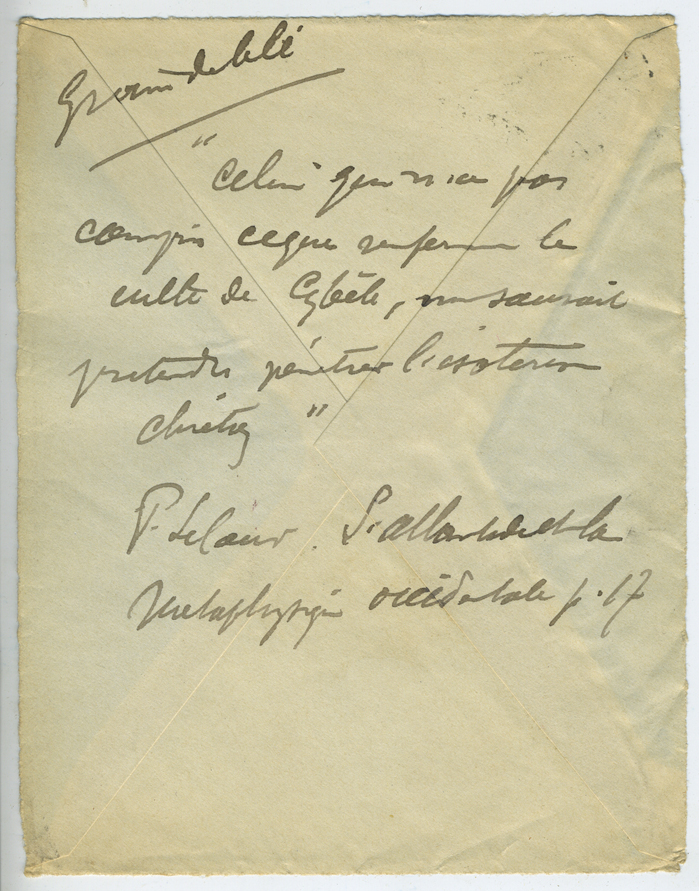 Grain de blé
"Celui qui n'a pas
compris ce que renferme le
culte de Cybèle, ne saurait
prétendre pénétrer l'ésoterisme
chrétien"
P. Le Cour. L'Atlantide et la
Métaphysique occidentale p. 17